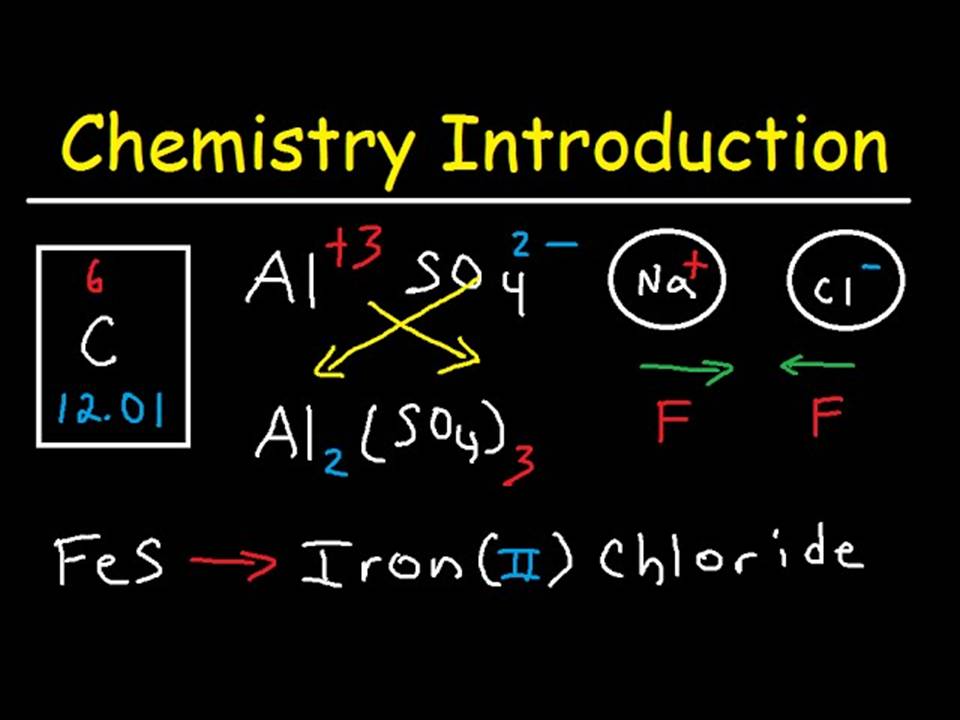 Chemistry Introduction
6
C
12.01
Al⁺³ SO₄²⁻
Al₂(SO₄)₃
Na⁺ Cl⁻
F F
FeS → Iron(II) Chloride